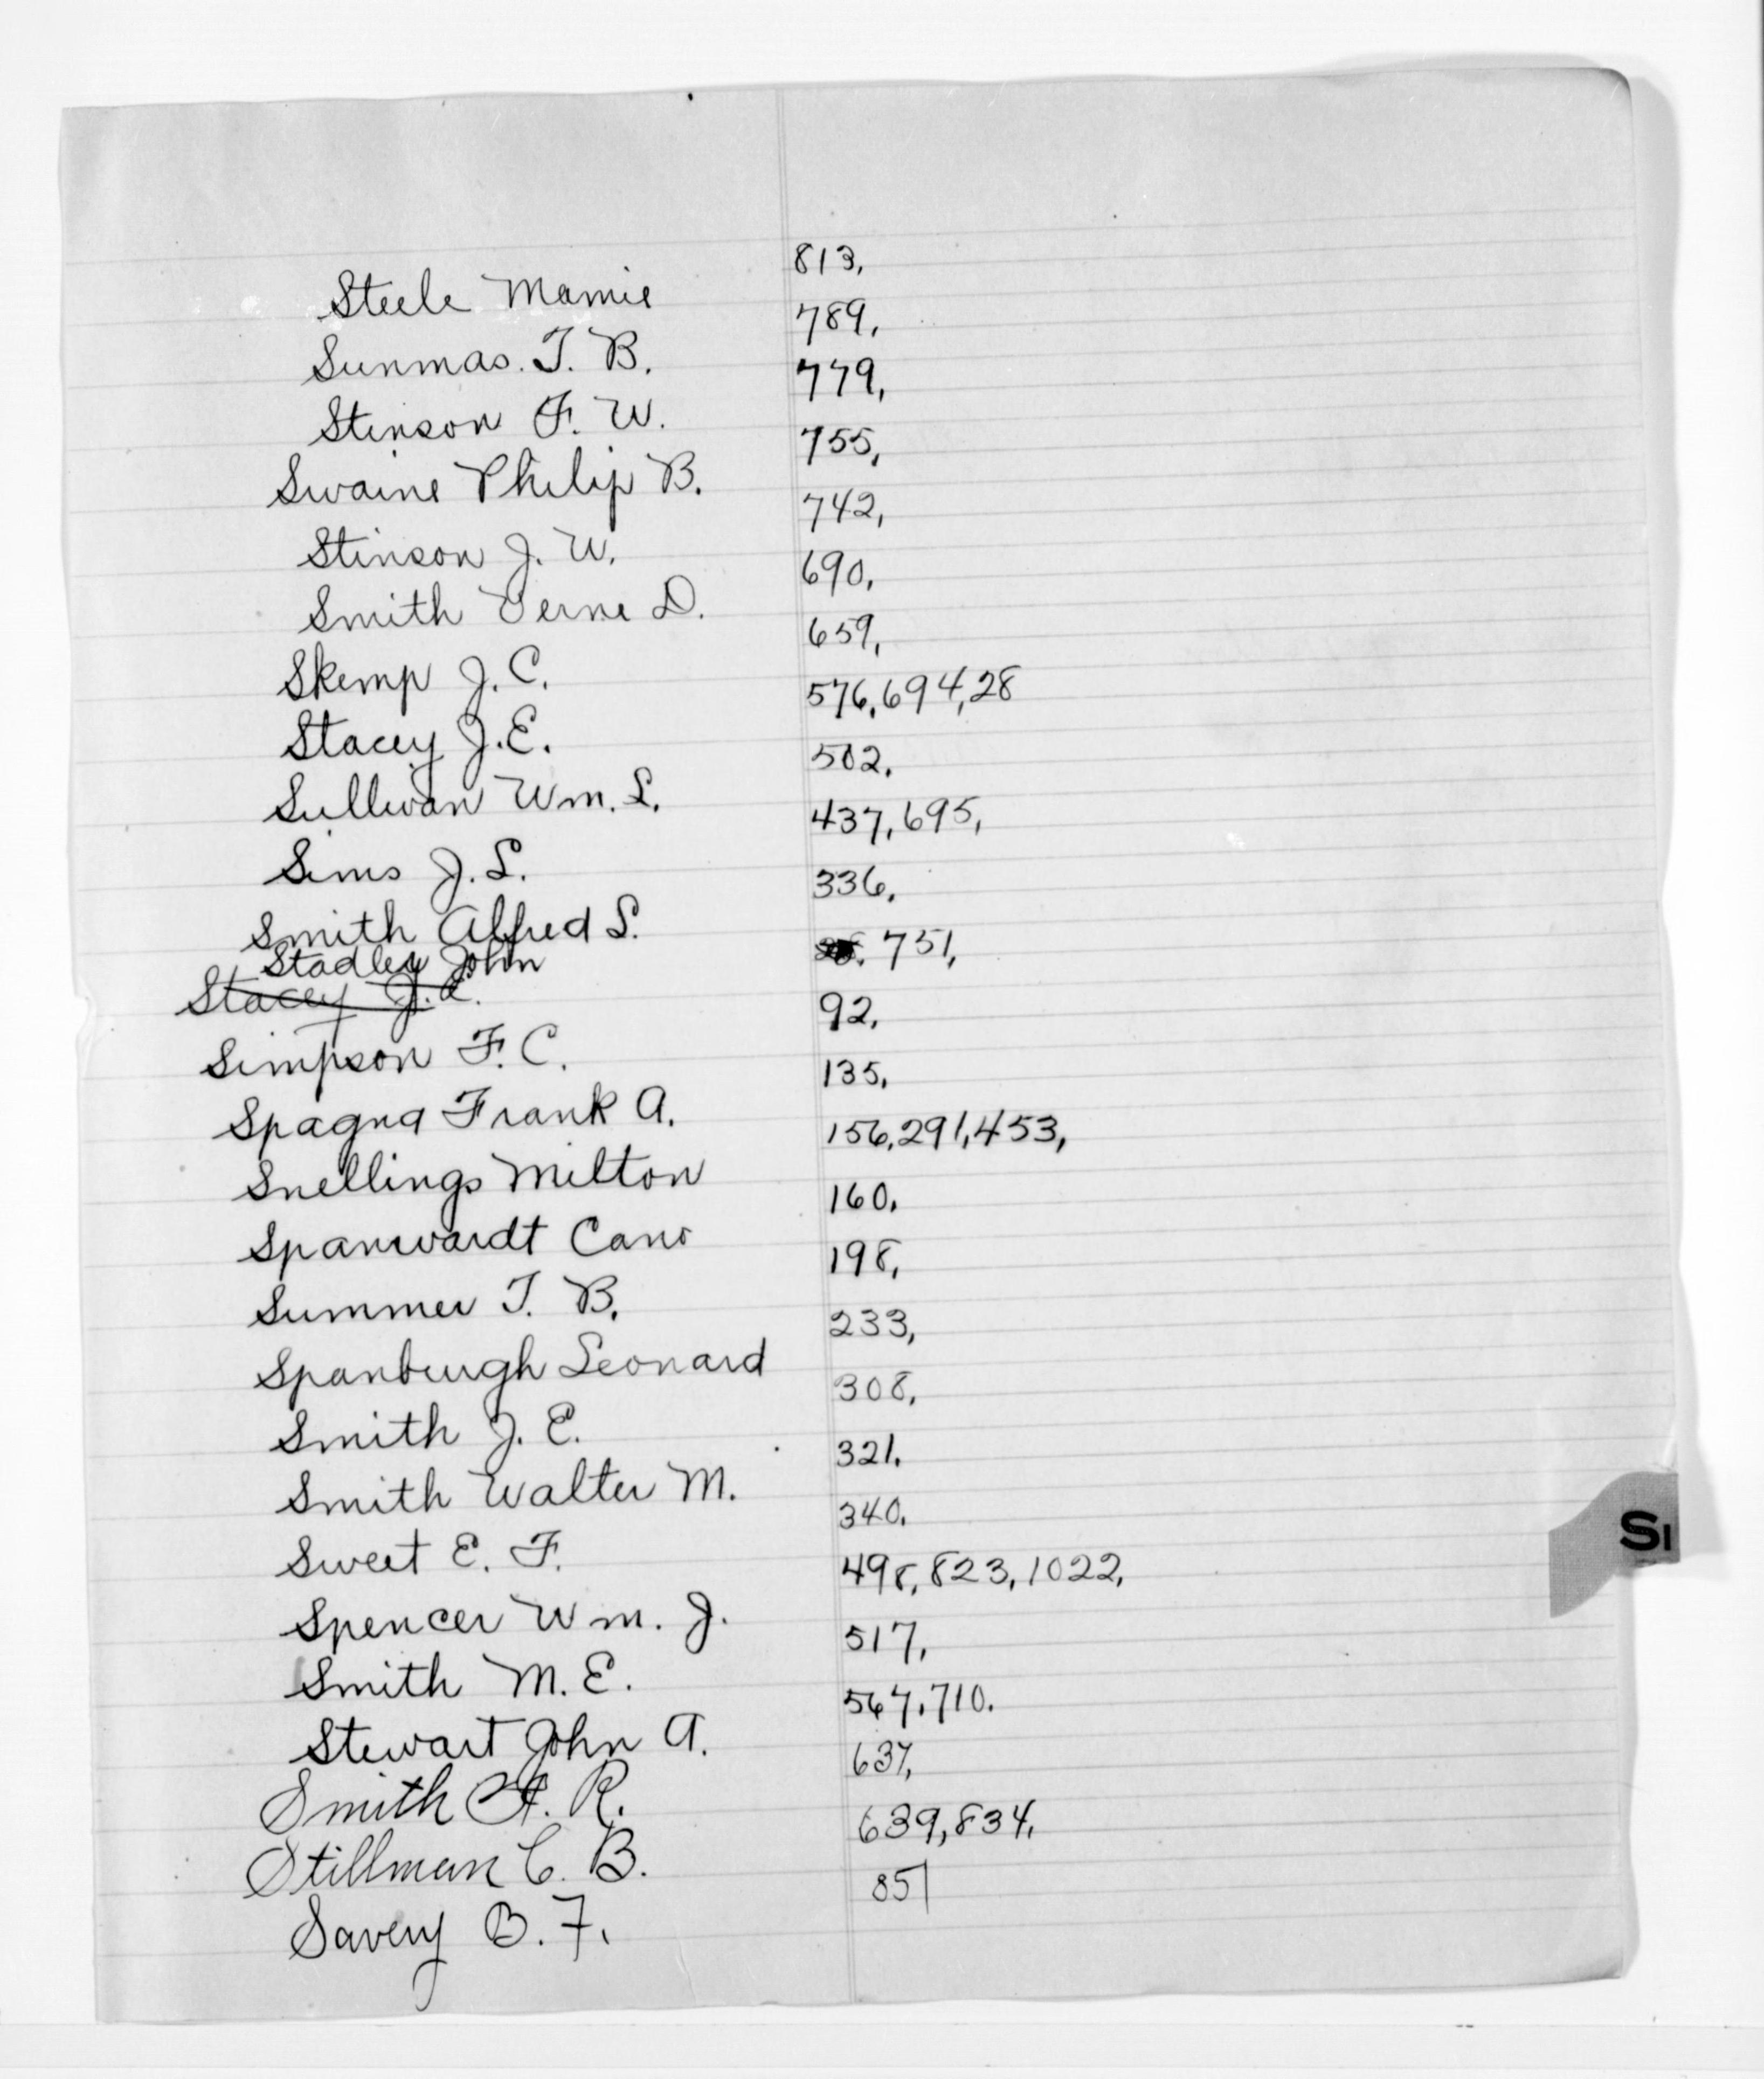 Steele Mamie 813,
Sunmas. T. B. 789,
Stinson F. W. 779,
Swaine Philip B. 755,
Stinson J. W. 742,
Smith Verne D. 690,
Skemp J. C. 659,
Stacey J. E. 576, 694, 28
Sullivan Wm. L. 502,
Sims J. L. 437, 695,
Smith Alfred L. 336,
Stadley John 751,
Stacey J. E.
Simpson F. C. 92,
Spagna Frank A. 135,
Snellings Milton 156, 291, 453,
Spanwardt 160,
Summer T. B. 198,
Spanburgh Leonard 233,
Smith J. E. 308,
Smith Walter M. 321,
Sweet E. F. 340,
Spencer Wm. J. 498, 823, 1022,
Smith M. E. 517,
Stewart John A. 567, 710.
Smith A. R. 637,
Stillman C. B. 639, 834,
Savery B. F. 851
S1